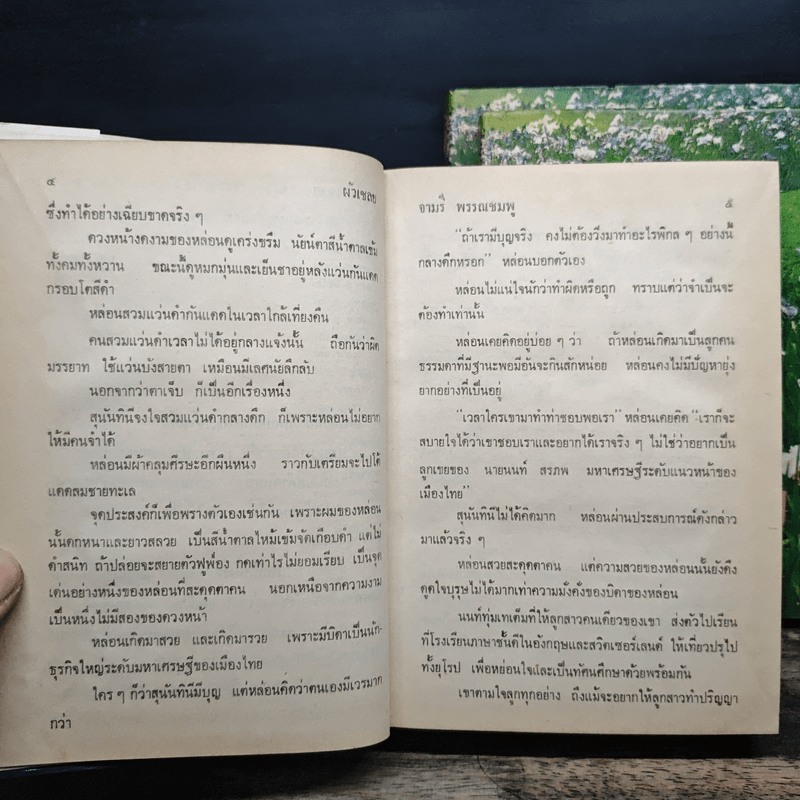 ๔ ผัวเชลย
ซึ่งทำได้อย่างเฉียบขาดจริง ๆ
ดวงหน้างดงามของหล่อนดูเคร่งขรึม นัยน์ตาสีน้ำตาลเข้ม
ทั้งคมทั้งหวาน ขณะนี้ดูหมกมุ่นและเย็นชาอยู่หลังแว่นกันแดด
กรอบโตสีดำ
หล่อนสวมแว่นดำกันแดดในเวลาใกล้เที่ยงคืน
คนสวมแว่นดำเวลาไม่ได้อยู่กลางแจ้งนั้น ถือกันว่าผิด
มรรยาท ใช้แว่นบังสายตา เหมือนมีเลศนัยลึกลับ
นอกจากว่าตาเจ็บ ก็เป็นอีกเรื่องหนึ่ง
สุนันทินีจงใจสวมแว่นดำกลางดึก ก็เพราะหล่อนไม่อยาก
ให้มีคนจำได้
หล่อนมีผ้าคลุมศีรษะอีกผืนหนึ่ง ราวกับเตรียมจะไปโต้
แดดลมชายทะเล
จุดประสงค์ก็เพื่อพรางตัวเองเช่นกัน เพราะผมของหล่อน
นั้นดกหนาและยาวสลวย เป็นสีน้ำตาลไหม้เข้มจัดเกือบดำ แต่ไม่
ดำสนิท ถ้าปล่อยจะสยายตัวฟูฟ่อง กดเท่าไรไม่ยอมเรียบ เป็นจุด
เด่นอย่างหนึ่งของหล่อนที่สะดุดตาคน นอกเหนือจากความงาม
เป็นหนึ่งไม่มีสองของดวงหน้า
หล่อนเกิดมาสวย และเกิดมารวย เพราะมีบิดาเป็นนัก-
ธุรกิจใหญ่ระดับมหาเศรษฐีของเมืองไทย
ใคร ๆ ก็ว่าสุนันทินีมีบุญ แต่หล่อนคิดว่าตนเองมีเวรมาก
กว่า
จามรี พรรณชมพู ๕
"ถ้าเรามีบุญจริง คงไม่ต้องวิ่งมาทำอะไรพิกล ๆ อย่างนี้
กลางดึกหรอก" หล่อนบอกตัวเอง
หล่อนไม่แน่ใจนักว่าทำผิดหรือถูก ทราบแต่ว่าจำเป็นจะ
ต้องทำเท่านั้น
หล่อนเคยคิดอยู่บ่อย ๆ ว่า ถ้าหล่อนเกิดมาเป็นลูกคน
ธรรมดาที่มีฐานะพอมีอันจะกินสักหน่อย หล่อนคงไม่มีปัญหายุ่ง
ยากอย่างที่เป็นอยู่
"เวลาใครเขามาทำท่าชอบพอเรา" หล่อนเคยคิด "เราก็จะ
สบายใจได้ว่าเขาชอบเราและอยากได้เราจริง ๆ ไม่ใช่ว่าอยากเป็น
ลูกเขยของ นายนนท์ สรภพ มหาเศรษฐีระดับแนวหน้าของ
เมืองไทย"
สุนันทินีไม่ได้คิดมาก หล่อนผ่านประสบการณ์ดังกล่าว
มาแล้วจริง ๆ
หล่อนสวยสะดุดตาคน แต่ความสวยของหล่อนนั้นยังดึง
ดูดใจบุรุษไม่ได้มากเท่าความมั่งคั่งของบิดาของหล่อน
นนท์ทุ่มเทเต็มที่ให้ลูกสาวคนเดียวของเขา ส่งตัวไปเรียน
ที่โรงเรียนภาษาชั้นดีในอังกฤษและสวิตเซอร์แลนด์ ให้เที่ยวปรุไป
ทั้งยุโรป เพื่อหย่อนใจและเป็นทัศนศึกษาด้วยพร้อมกัน
เขาตามใจลูกทุกอย่าง ถึงแม้จะอยากให้ลูกสาวทำปริญญา